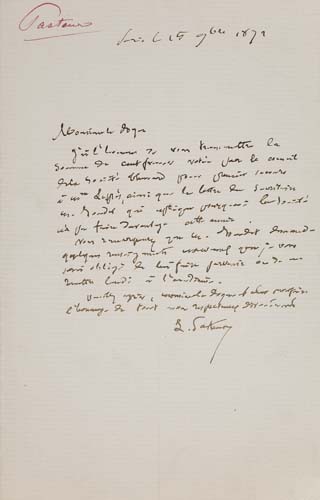 Pasteur
Paris le 15 9bre 1872
Monsieur le doyen
J'ai l'honneur de vous transmettre la
somme de cent francs votée par le conseil
de la Société pour premier secours
à ainsi que la lettre du Secrétaire
M. qui explique pourquoi la Société
n'a pu faire davantage cette année.
Vous remarquerez que M. demande
quelques renseignements que je vous
serai obligé de lui faire parvenir ou de me
remettre lundi à l'académie.
Veuillez agréer, monsieur le doyen et cher confrère
l'hommage de tout mon respectueux dévouement
L. Pasteur